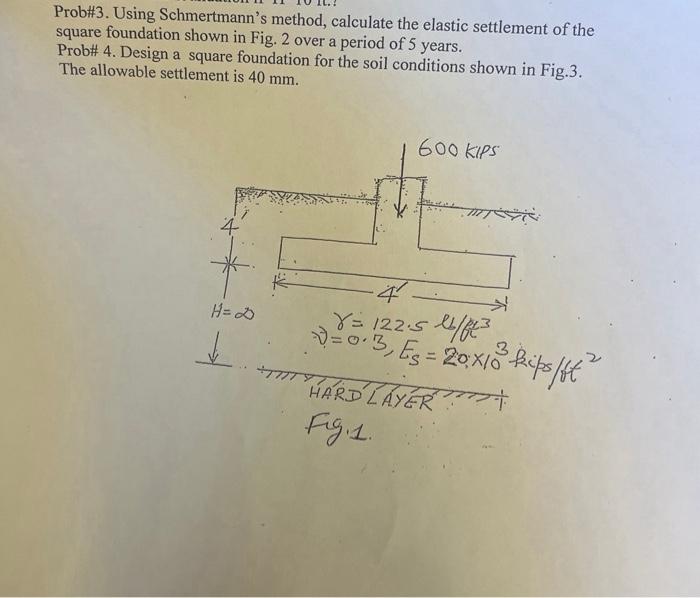 Prob#3. Using Schmertmann's method, calculate the elastic settlement of the
square foundation shown in Fig. 2 over a period of 5 years.
Prob# 4. Design a square foundation for the soil conditions shown in Fig.3.
The allowable settlement is 40 mm.
600 KIPS
4'
4'
H=∞
γ= 122.5 lb/ft³
ν=0.3, Es = 20×10³ kips/ft²
HARD LAYER
Fig.1.